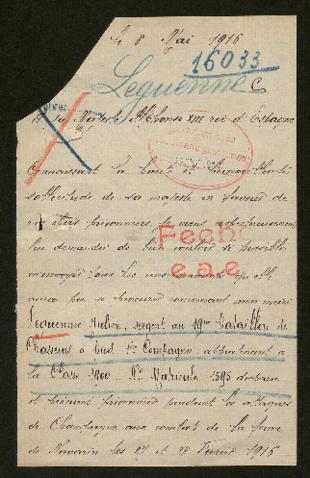 le 8 Mai 1916
16033
Leguenne
C
A sa Majesté Alphonse XIII roi d'Espagne
Connaissant la haute et bienveillante
sollicitude de sa majesté en faveur de
prisonniers, je viens respectueusement
lui demander de bien vouloir si possible
m'envoyer tous les renseignements qu'elle
aura pu se procurer concernant mon mari
Fecho
e.a.e.
Leguenne Jules, sergent au 19me Bataillon de
Chasseurs à pied Compagnie, appartenant à
la Classe 1900 No Matricule 1595 disparu
et présumé prisonnier pendant les attaques
de Champagne aux combats de la ferme
de Navarin les 27 et 28 Février 1916